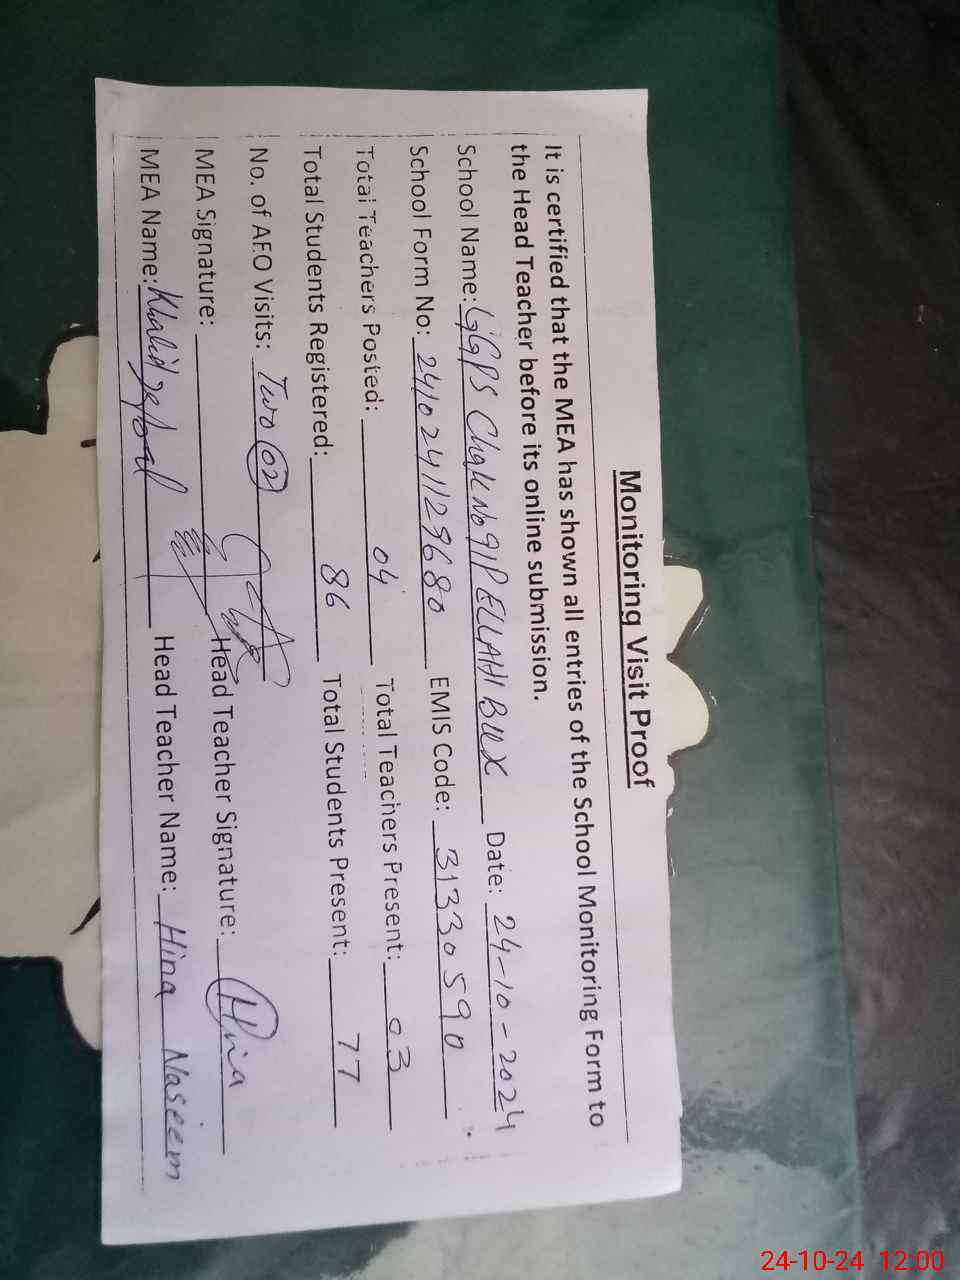 Monitoring Visit Proof
It is certified that the MEA has shown all entries of the School Monitoring Form to
the Head Teacher before its online submission.
School Name: GGPS Chak No 91P ELLAHI BUX Date: 24-10-2024
School Form No: 2410241129680 EMIS Code: 31330590
Total Teachers Posted: 04 Total Teachers Present: 03
Total Students Registered: 86 Total Students Present: 77
No. of AEO Visits: Two 02
MEA Signature: Head Teacher Signature: Hina
MEA Name: Khalid Iqbal Head Teacher Name: Hina Naseem
24-10-24 12:00